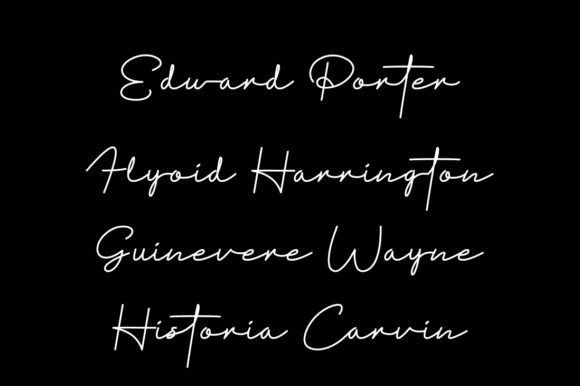 Edward Porter
Flyoid Harrington
Guinevere Wayne
Historia Carvin